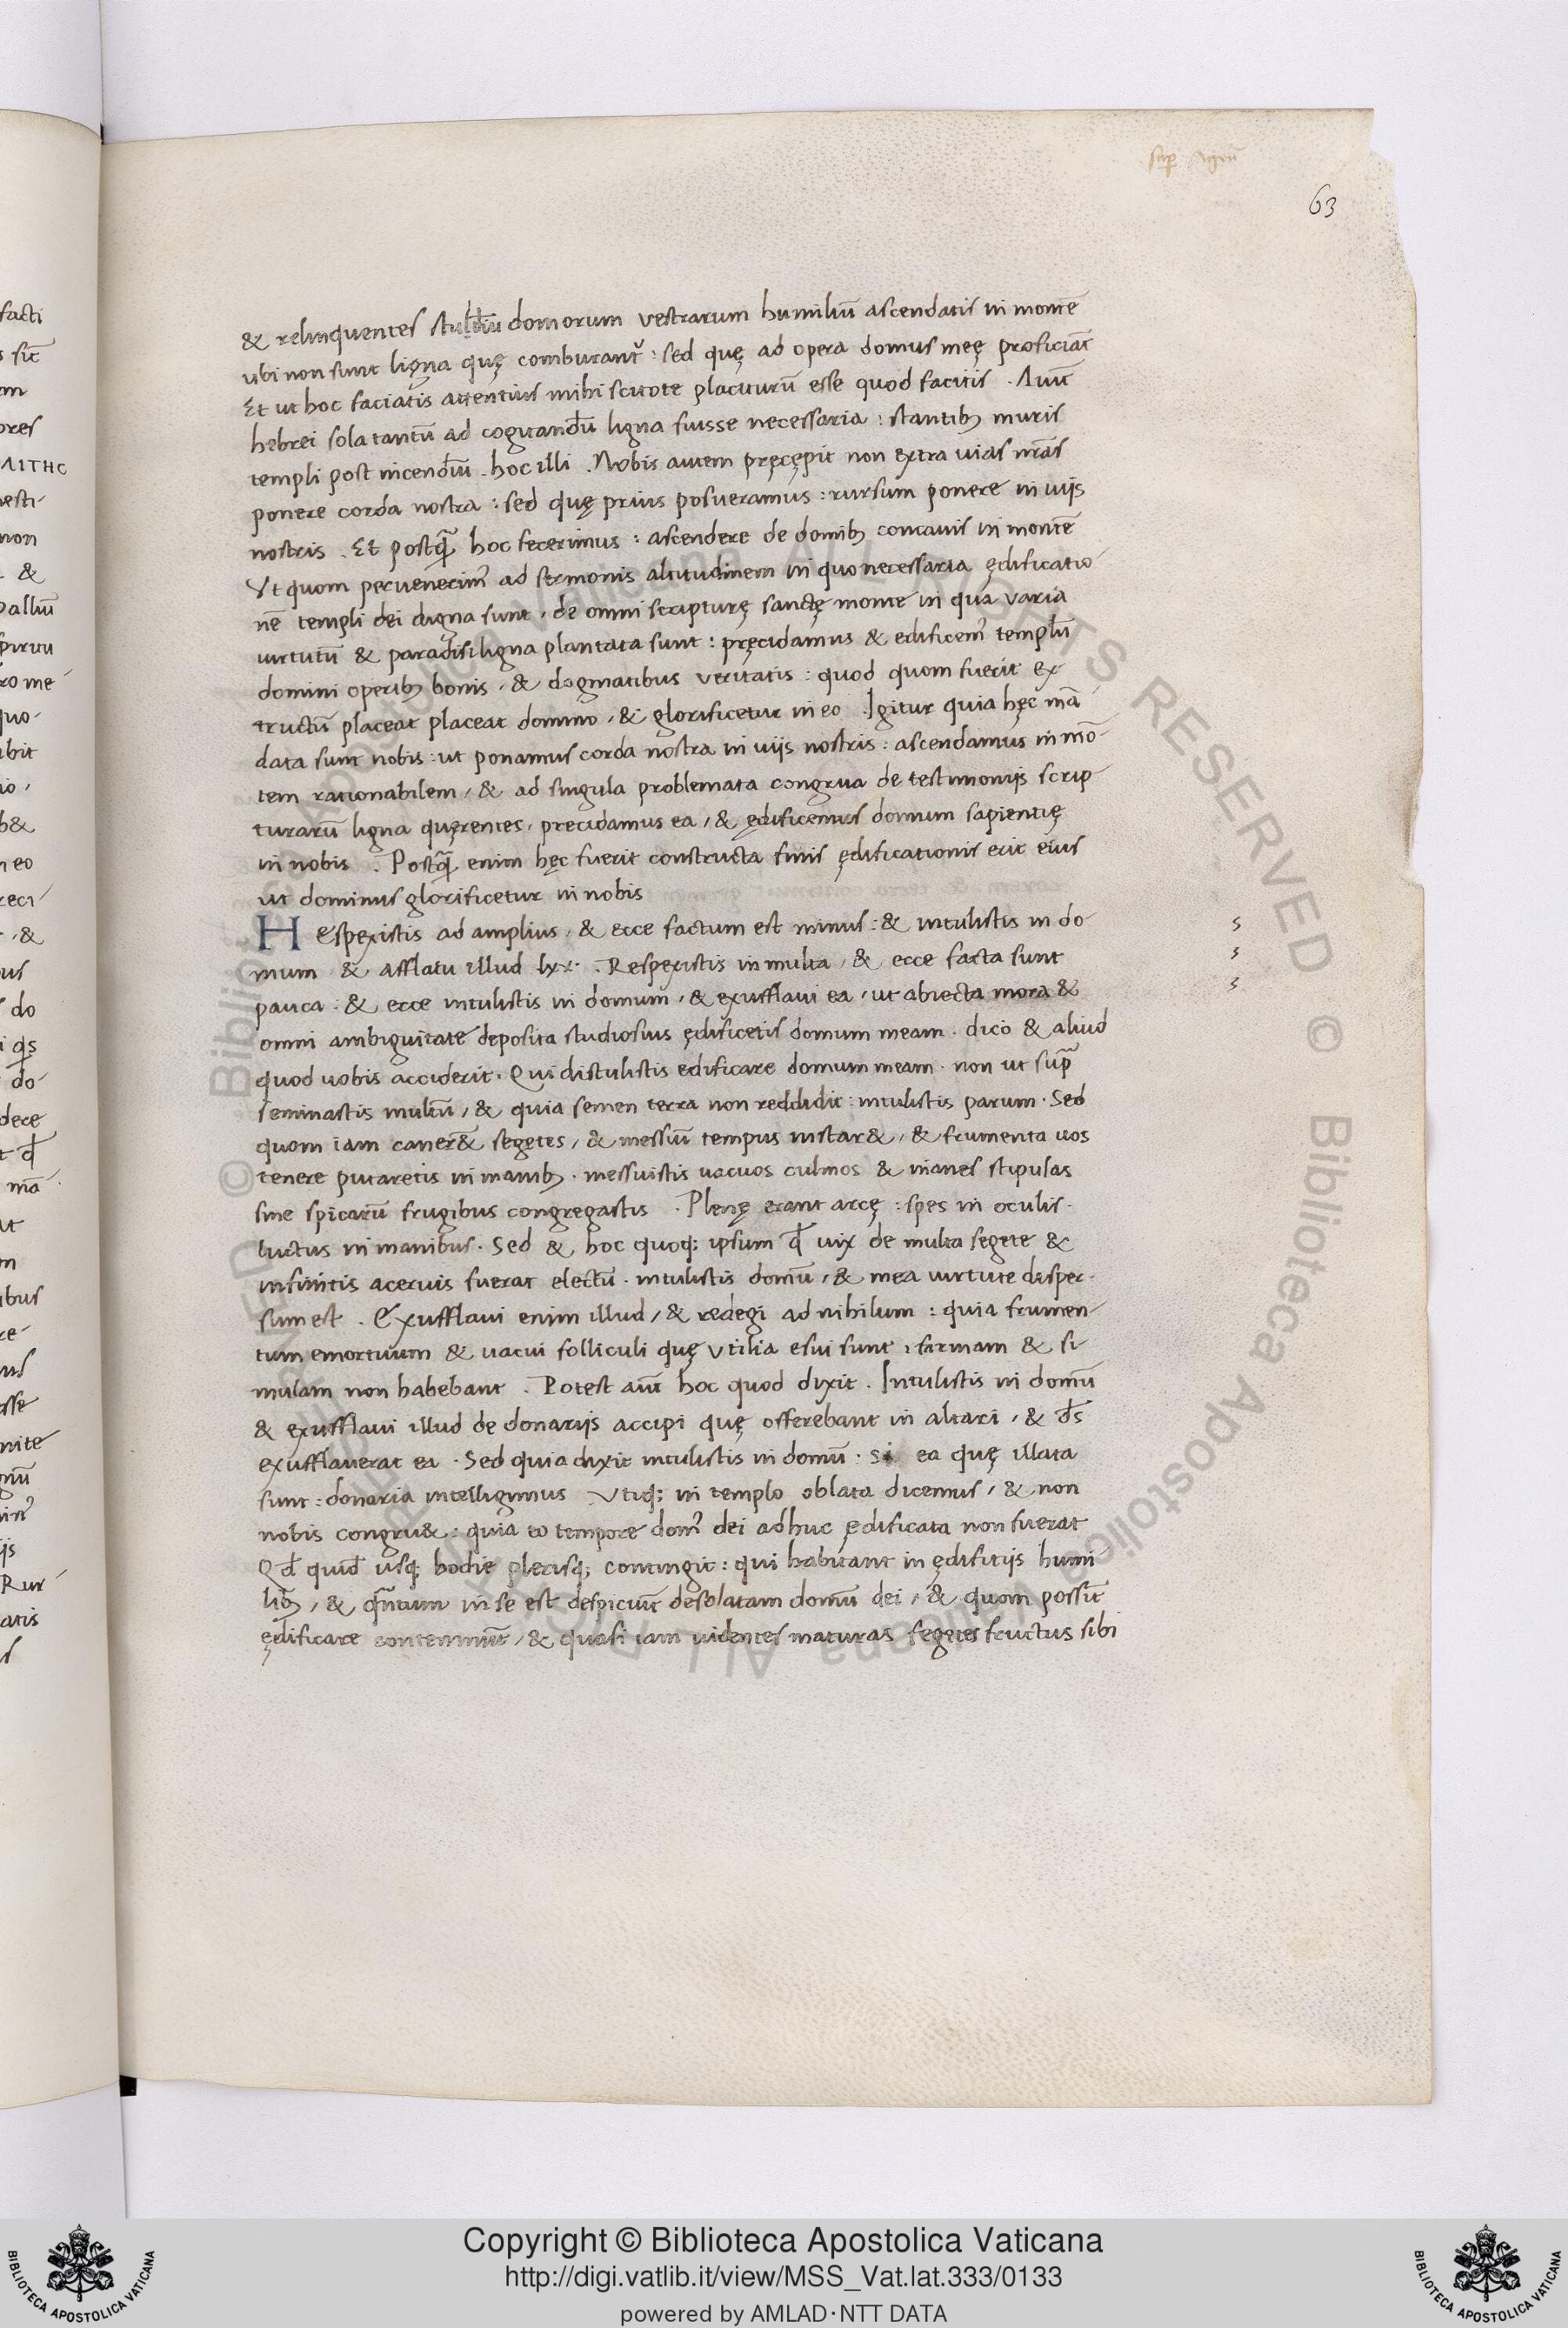 sup Ageū
63
& relinquentes domorum vestrarum humiliū ascendatis in montē
ubi non sunt ligna quę comburant᷑ : sed quę ad opera domus meę proficiāt
Et ut hoc faciatis attentius mihi scitote placiturū esse quod facitis . Aiūt
hebrei sola tantū ad cogitandū ligna fuisse necessaria : stantibȝ muris
templi post incendiū . hoc illi . Nobis autem pręcępit non extra uias nr̄as
ponere corda nostra : sed quę prius posueramus : rursum ponere in uijs
nostris . Et postq̄ hoc fecerimus : ascendere de domibȝ concauis in montē
Vt quom peruenerim᷒ ad sermonis altitudinem in quo necessaria ędificatio-
nē templi dei digna sunt , de omni scripturę sanctę monte in qua varia
uirtutū & paradisi ligna plantata sunt : pręcidamus & edificem᷒ templū
domini operibȝ bonis , & dogmatibus veritatis : quod quom fuerit ex-
tructū placeat placeat domino , & glorificetur in eo . Igitur quia hęc mā-
data sunt nobis : ut ponamus corda nostra in uijs nostris : ascendamus in mō-
tem rationabilem , & ad singula problemata congrua de testimonijs scrip-
turarū ligna quęrentes , precidamus ea , & ędificemus domum sapientię
in nobis . Postq̄ enim hęc fuerit constructa finis ędificationis erit eius
ut dominus glorificetur in nobis
H espexistis ad amplius , & ecce factum est minus : & intulistis in do-
mum & afflatu illud lxx . Respexistis in multa , & ecce facta sunt
pauca : & ecce intulistis in domum , & exufflaui ea , ut abiecta mora &
omni ambiguitate deposita studiosius ędificetis domum meam . dico & aliud
quod uobis acciderit . Qui distulistis edificare domum meam . non ut sup̄
seminastis multū , & quia semen terra non reddidit : intulistis parum . Sed
quom iam caner& segetes , & messiū tempus instar& , & frumenta uos
tenere putaretis in manibȝ . messuistis uacuos culmos & inanes stipulas
sine spicarū frugibus congregastis . Plenę erant arcę : spes in oculis .
luctus in manibus . Sed & hoc quoq; ipsum qđ uix de multa segete &
infinitis aceruis fuerat electū . intulistis domū , & mea uirtute disper-
sum est . Exufflaui enim illud , & redegi ad nihilum : quia frumen-
tum emortuum & uacui folliculi quę vtilia esui sunt , farinam & si-
mulam non habebant . Potest aūt hoc quod dixit . Intulistis in domū
& exufflaui illud de donarijs accipi quę offerebant in altari , & d̄s
exufflauerat ea . Sed quia dixit intulistis in domū . si ea quę illata
sunt : donaria intelligimus Vtiq; in templo oblata dicemus , & non
nobis congru& : quia eo tempore dom᷒ dei adhuc ędificata non fuerat
Qđ quid̄ usq; hodie plerisq; contingit : qui habitant in ędifitijs humi-
libȝ , & q̄ntum in se est despiciūt desolatam domū dei , & quom possīt
ędificare contemnūt , & quasi iam uidentes maturas segetes fructus sibi
s
s
s
facti
& 
non
Copyright © Biblioteca Apostolica Vaticana
http://digi.vatlib.it/view/MSS_Vat.lat.333/0133
powered by AMLAD·NTT DATA
BIBLIOTECA APOSTOLICA VATICANA
BIBLIOTECA APOSTOLICA VATICANA